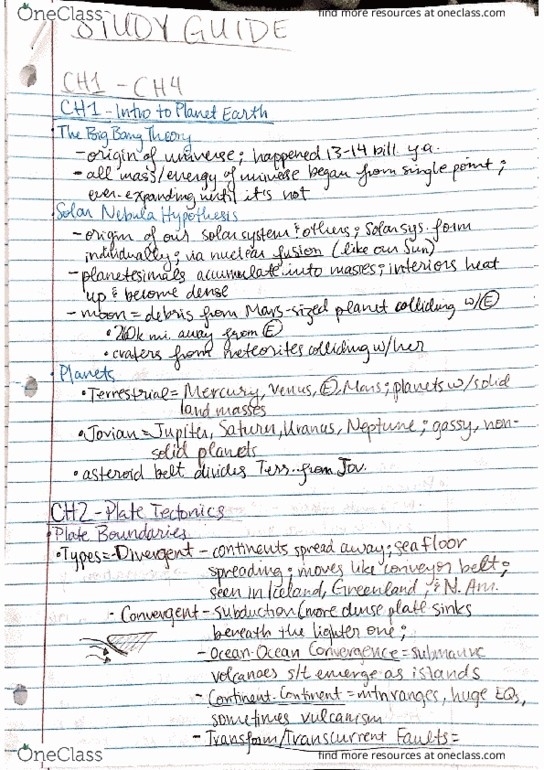 OneClass
find more resources at oneclass.com
STUDY GUIDE
CH1 - CH4
CH1 - Intro to Planet Earth
The Big Bang Theory
- origin of universe; happened 13-14 bill. y.a.
- all mass/energy of universe began from single point;
ever-expanding until it's not
Solar Nebula Hypothesis
- origin of our solar system & others; solar sys. form
individually; via nuclear fusion (like our Sun)
- planetesimals accumulate into masses; interiors heat
up & become dense
- moon = debris from Mars-sized planet colliding w/ E
• k mi. away from E
• craters from meteorites colliding w/ her
• Planets
• Terrestrial = Mercury, Venus, E, Mars; planets w/ solid
land masses
• Jovian = Jupiter, Saturn, Uranus, Neptune; gassy, non-
solid planets
• asteroid belt divides Terr. from Jov.
CH2 - Plate Tectonics
• Plate Boundaries
• Types = - Divergent - continents spread away; seafloor
spreading; moves like conveyor belt;
seen in Iceland, Greenland, & N. Am.
• Convergent - subduction (more dense plate sinks
beneath the lighter one;
- Ocean-Ocean Convergence = submarine
volcanoes s/t emerge as islands
- Continent-Continent = mtn ranges, huge EQs,
sometimes vulcanism
- Transform/Transcurrent Faults =
OneClass
find more resources at oneclass.com